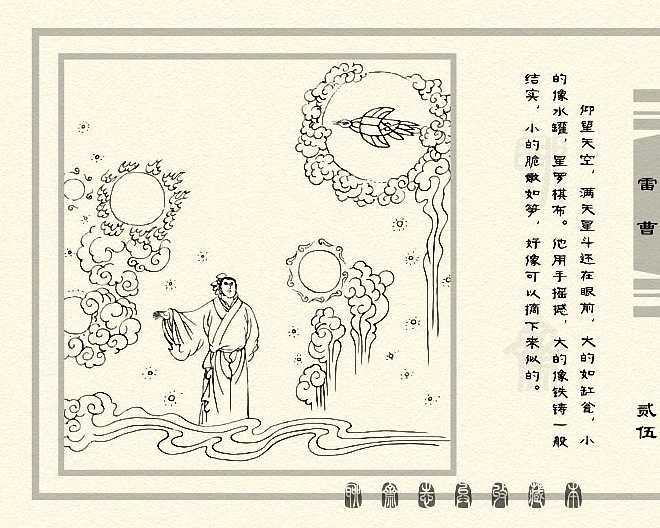 仰望天空，满天星斗还在眼前，大的如缸瓮，小
的像水罐，星罗棋布。他用手摇撼，大的像铁铸一般
结实，小的脆嫩如笋，好像可以摘下来似的。
雷曹
贰伍